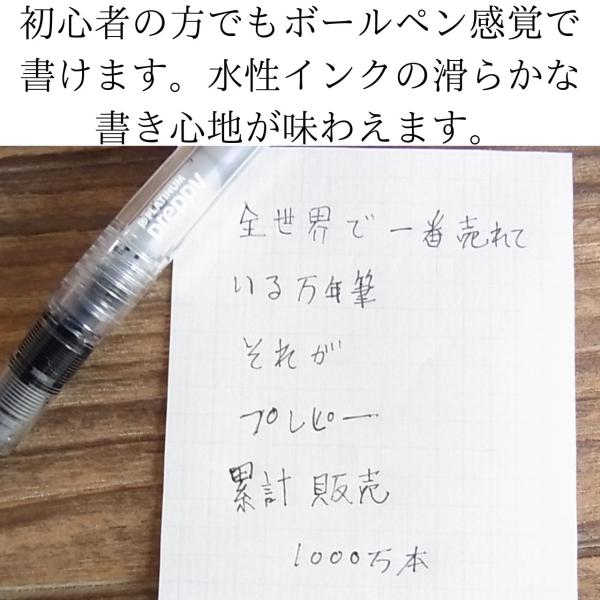 初心者の方でもボールペン感覚で
書けます。水性インクの滑らかな
書き心地が味わえます。
PLATINUM
preppy
全世界で一番売れて
いる万年筆
それが
プレピー
累計販売
1000万本